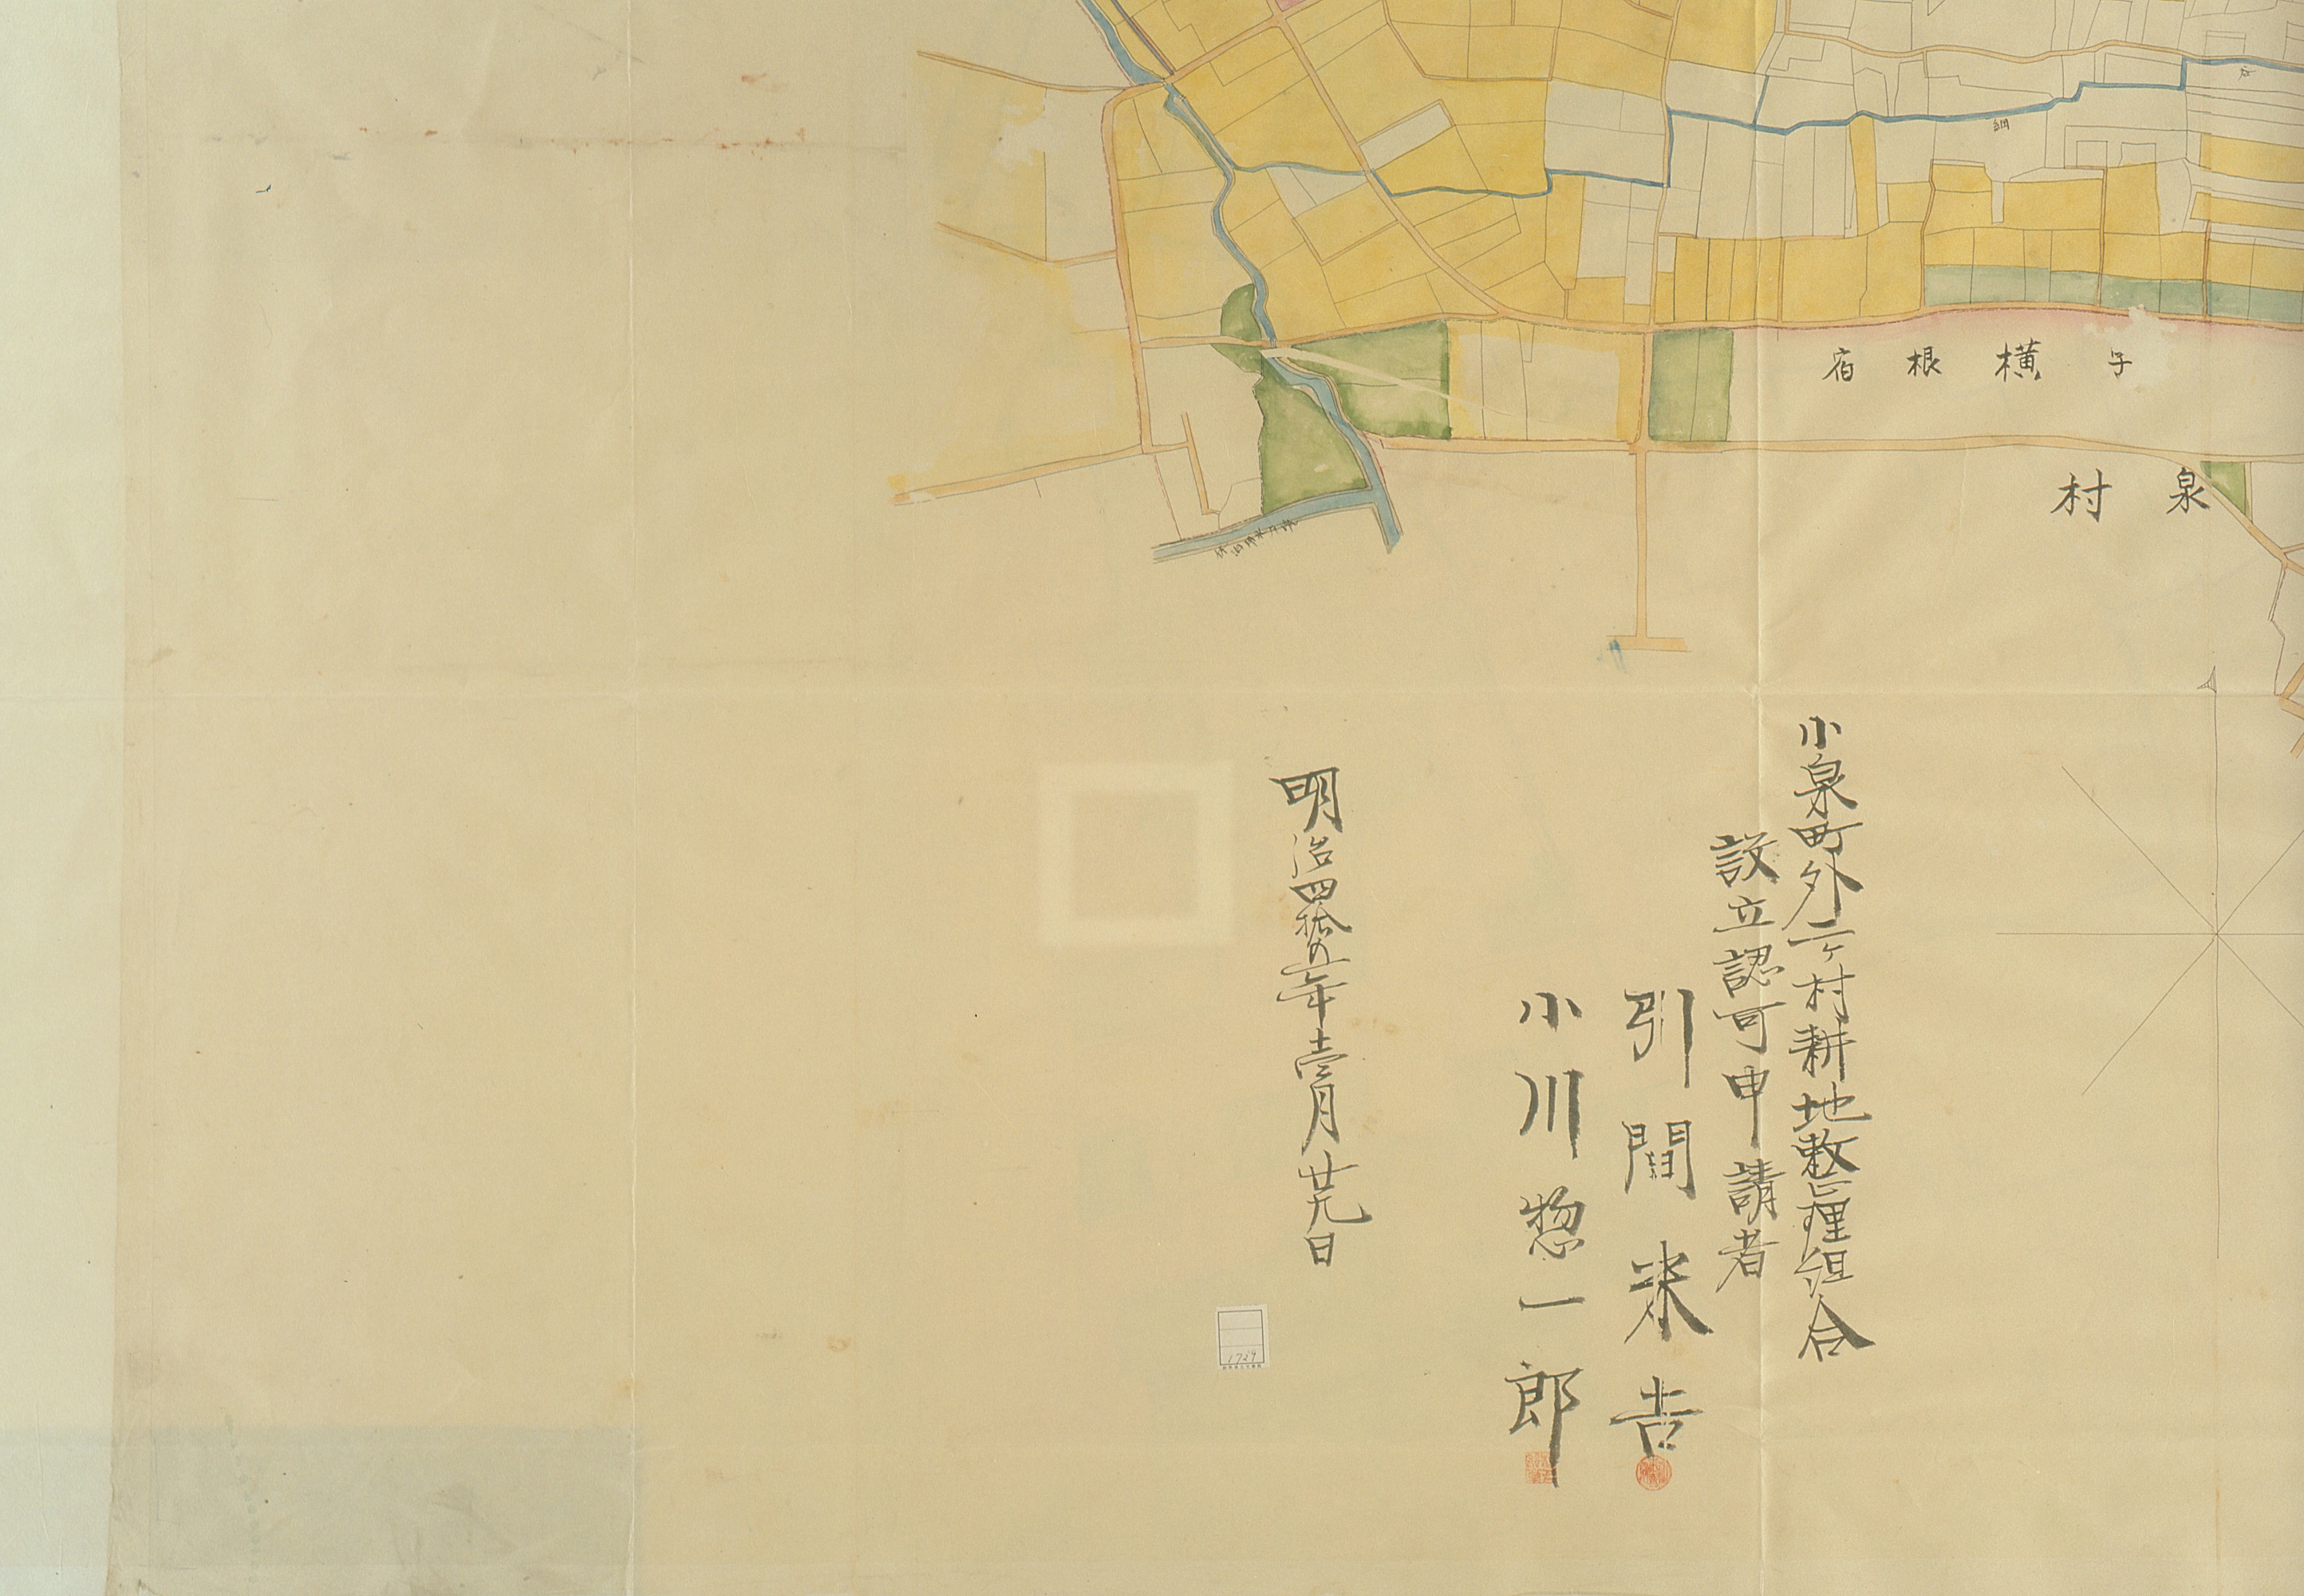 子横根宿
泉村
小泉町外二ヶ村耕地整理組合
設立認可申請者
引間米吉
小川惣一郎
明治四拾五年壱月廿九日
1729